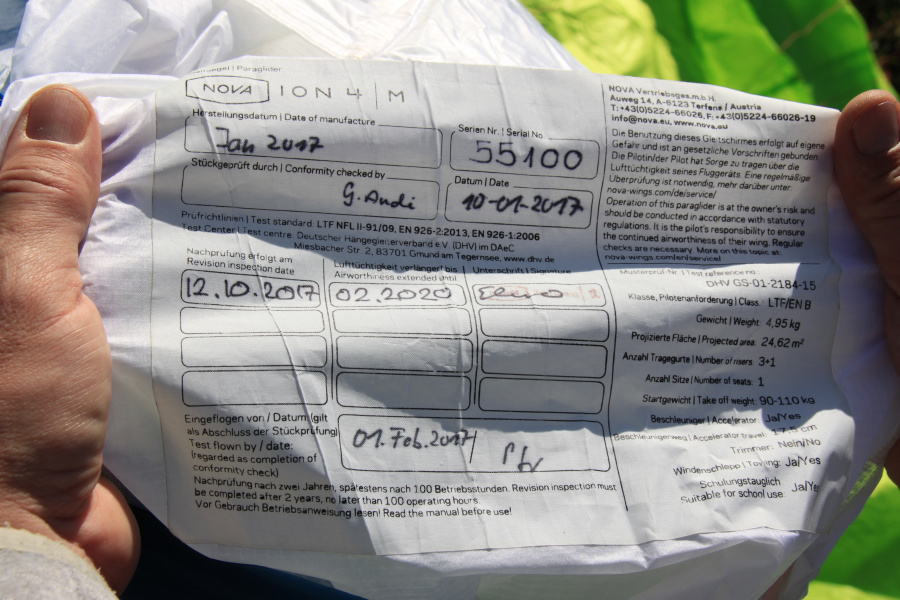 Paraglider
NOVA ION 4 | M
Herstellungsdatum | Date of manufacture
Jan 2017
Serien Nr. | Serial No
55100
Stückgeprüft durch | Conformity checked by
G. Andi
Datum | Date
10-01-2017
Prüfrichtlinien | Test standard: LTF NFL II-91/09, EN 926-2:2013, EN 926-1:2006
Test Center | Test centre: Deutscher Hängegleiterverband e.V. (DHV) im DAeC
Miesbacher Str. 2, 83701 Gmund am Tegernsee, www.dhv.de
Nachprüfung erfolgt am
Revision inspection date
Lufttüchtigkeit verlängert bis
Airworthiness extended until
Unterschrift | Signature
12.10.2017
02.2020
Eingeflogen von / Datum (gilt
als Abschluss der Stückprüfung)
Test flown by / date:
(regarded as completion of
conformity check)
01. Feb. 2017/
Nachprüfung nach zwei Jahren, spätestens nach 100 Betriebsstunden. Revision inspection must
be completed after 2 years, no later than 100 operating hours.
Vor Gebrauch Betriebsanweisung lesen! Read the manual before use!
NOVA Vertriebsges.m.b.H.
Auweg 14, A-6123 Terfens / Austria
T: +43(0)5224-66026, F: +43(0)5224-66026-19
info@nova.eu, www.nova.eu
Die Benutzung dieses Gleitschirmes erfolgt auf eigene
Gefahr und ist an gesetzliche Vorschriften gebunden.
Die Pilotin/der Pilot hat Sorge zu tragen über die
Lufttüchtigkeit seines Fluggeräts. Eine regelmäßige
Überprüfung ist notwendig, mehr darüber unter:
nova-wings.com/de/service/
Operation of this paraglider is at the owner's risk and
should be conducted in accordance with statutory
regulations. It is the pilot's responsibility to ensure
the continued airworthiness of their wing. Regular
checks are necessary. More on this topic at:
nova-wings.com/en/service/
Musterprüf-Nr. | Test reference no.:
DHV GS-01-2184-15
Klasse, Pilotenanforderung | Class: LTF/EN B
Gewicht | Weight: 4,95 kg
Projizierte Fläche | Projected area: 24,62 m²
Anzahl Tragegurte | Number of risers: 3+1
Anzahl Sitze | Number of seats: 1
Startgewicht | Take off weight: 90-110 kg
Beschleuniger | Accelerator: Ja/Yes
Beschleunigerweg | Accelerator travel: 17,5 cm
Trimmer: Nein/No
Windenschlepp | Towing: Ja/Yes
Schulungstauglich
Suitable for school use: Ja/Yes